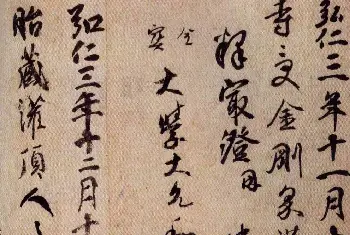 弘仁三年十一月
寺受金剛界
釋最澄因
金
寳
大學大允和
弘仁三年十二月十
胎藏灌頂人々